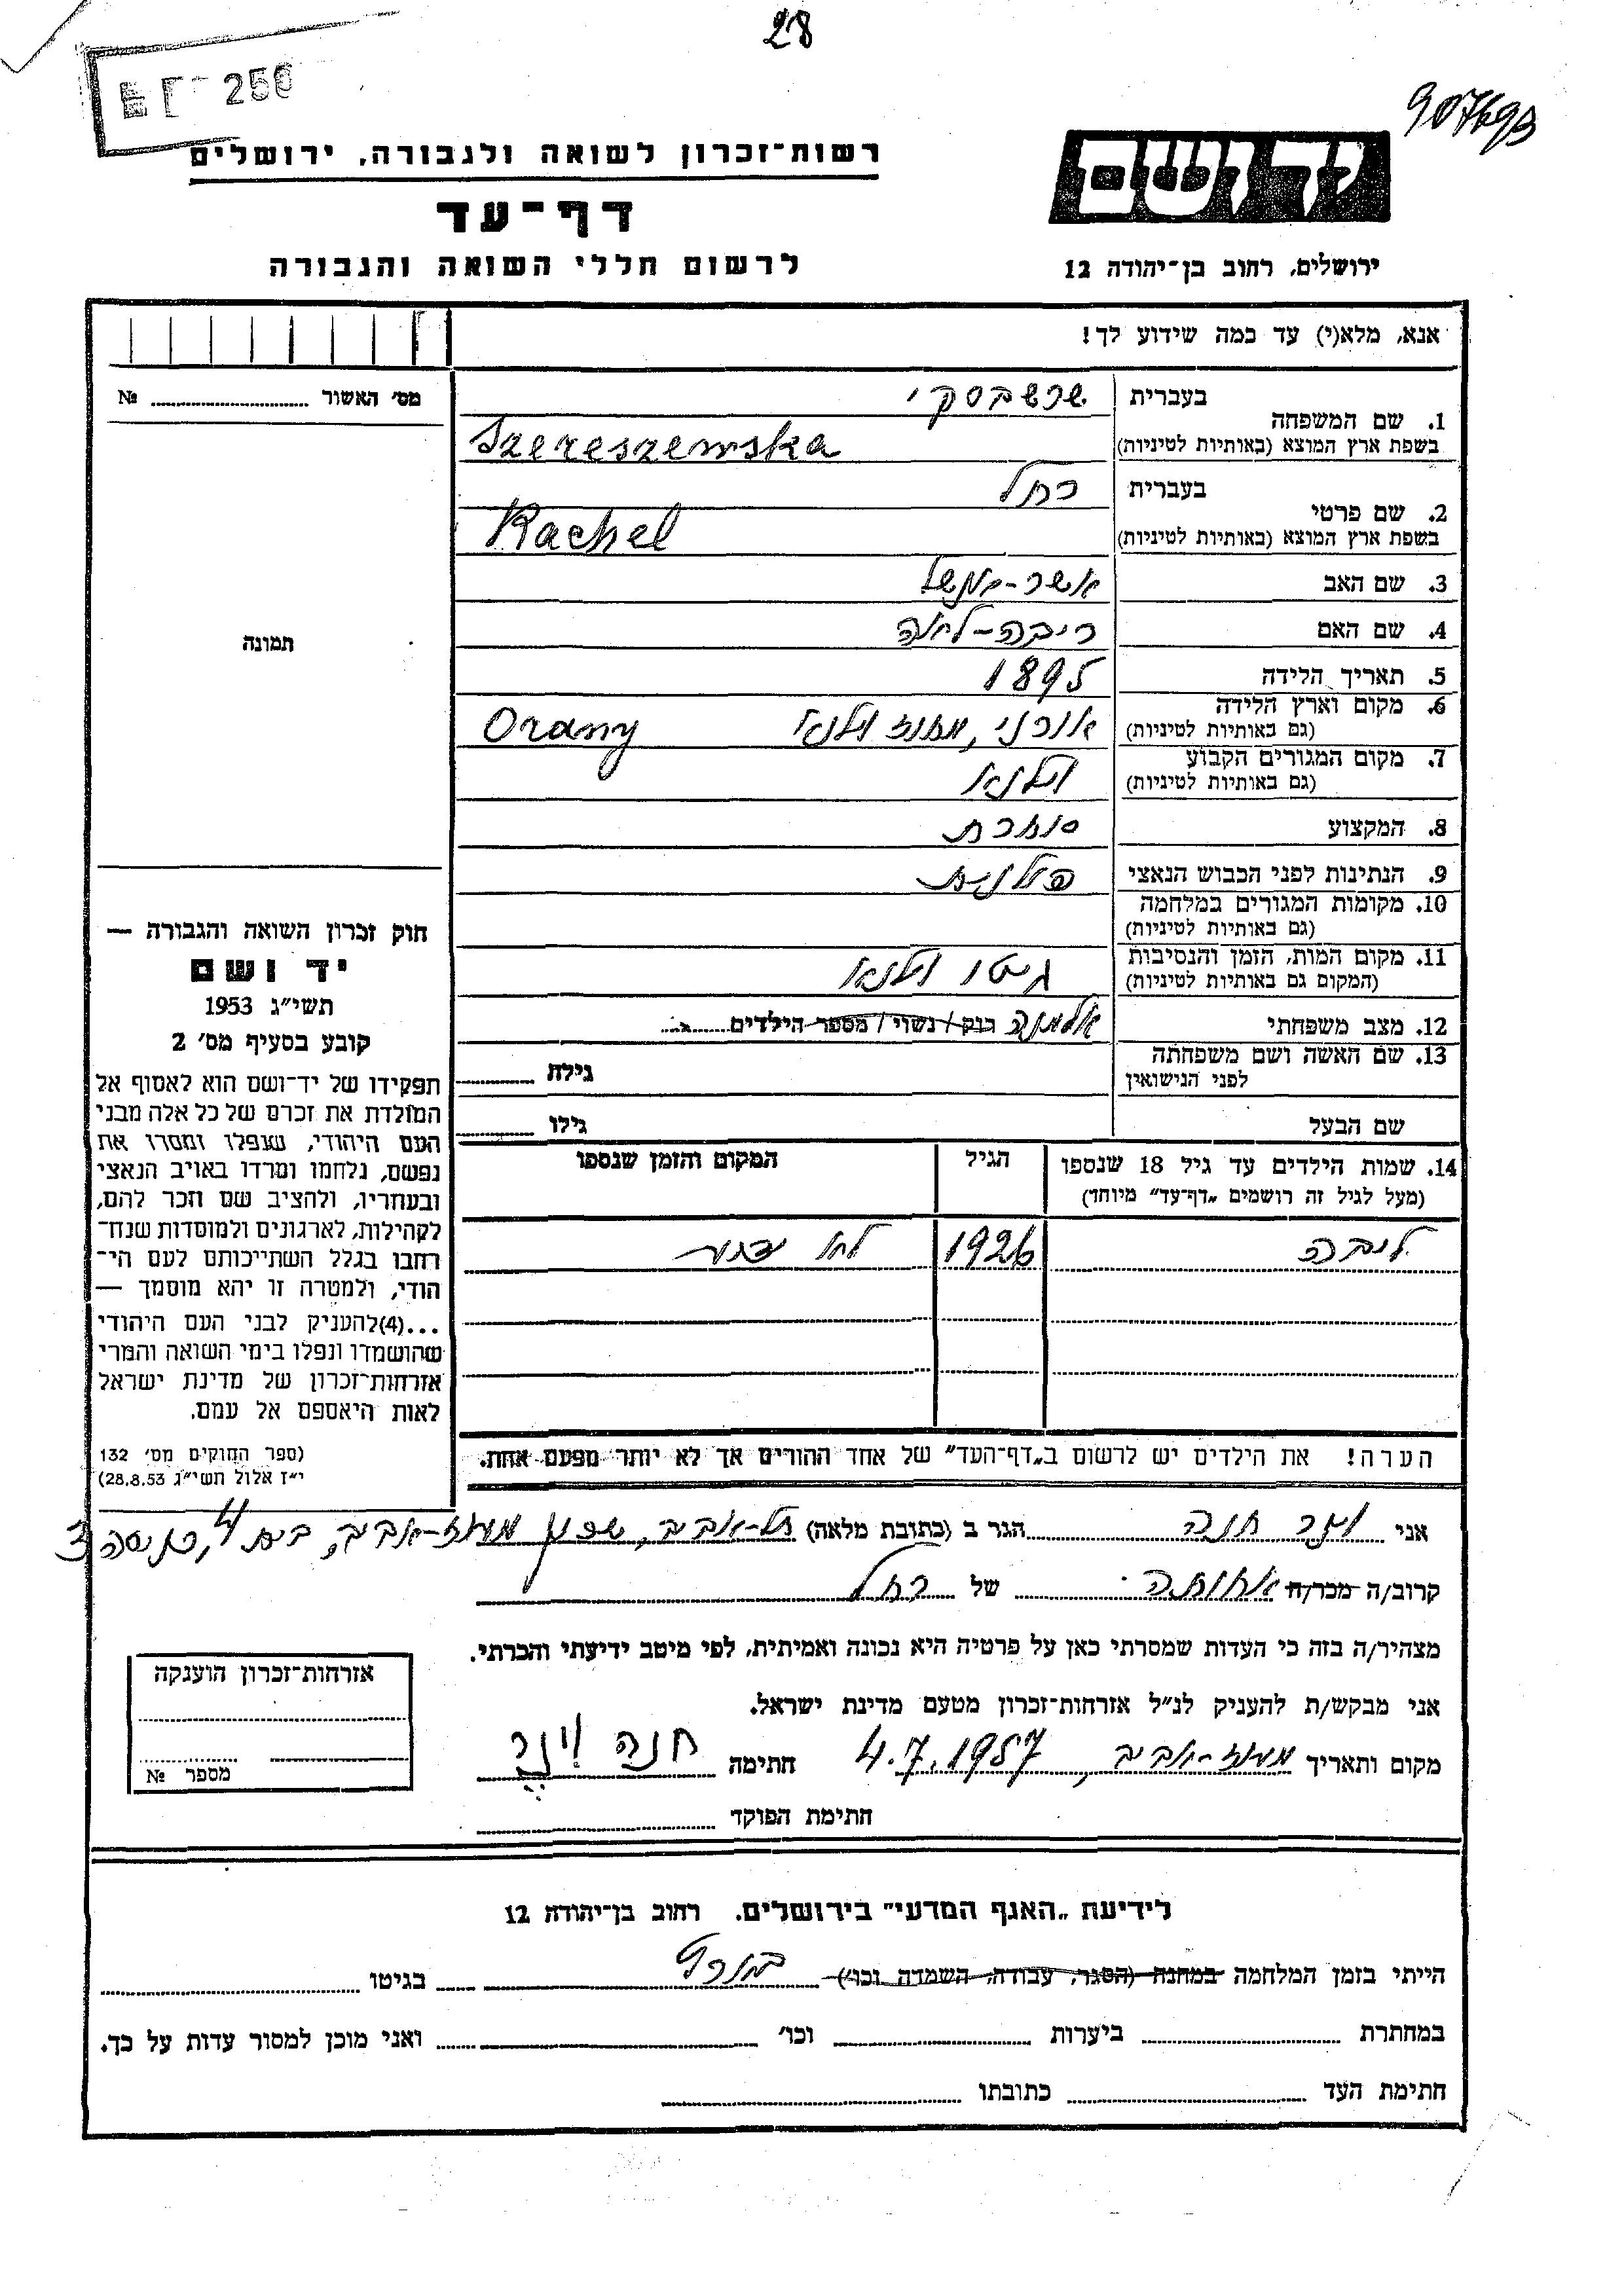 28
907693
256
רשות־זכרון לשואה ולגבורה, ירושלים
יד ושם
דף־עד
לרשום חללי השואה והגבורה
ירושלים, רחוב בן־יהודה 12
אנא, מלא(י) עד כמה שידוע לך!
מס' האשור №
1. שם המשפחה
בעברית שרשבסקי
בשפת ארץ המוצא (באותיות לטיניות) Szereszewska
2. שם פרטי
בעברית רחל
בשפת ארץ המוצא (באותיות לטיניות) Rachel
3. שם האב אשר-אנשל
4. שם האם ריבה-לאה
5. תאריך הלידה 1895
6. מקום וארץ הלידה
(גם באותיות לטיניות) אורני, מחוז וילנא Orany
7. מקום המגורים הקבוע
(גם באותיות לטיניות) וילנא
8. המקצוע סוחרת
9. הנתינות לפני הכבוש הנאצי פולנית
10. מקומות המגורים במלחמה
(גם באותיות לטיניות)
11. מקום המות, הזמן והנסיבות
(המקום גם באותיות לטיניות) גיטו וילנא
12. מצב משפחתי אלמנה רוק / נשוי / מספר הילדים
13. שם האשה ושם משפחתה
לפני הנישואין
גילה
שם הבעל
גילו
14. שמות הילדים עד גיל 18 שנספו
(מעל לגיל זה רושמים „דף־עד" מיוחד)
הגיל
המקום והזמן שנספו
ליבה 1926 לא ידוע
הערה! את הילדים יש לרשום ב„דף־העד" של אחד ההורים אך לא יותר מפעם אחת.
תמונה
חוק זכרון השואה והגבורה —
יד ושם
תשי"ג 1953
קובע בסעיף מס' 2
תפקידו של יד־ושם הוא לאסוף אל
המולדת את זכרם של כל אלה מבני
העם היהודי, שנפלו ומסרו את
נפשם, נלחמו ומרדו באויב הנאצי
ובעוזריו, ולהציב שם וזכר להם,
לקהילות, לארגונים ולמוסדות שנח־
רבו בגלל השתייכותם לעם הי־
הודי, ולמטרה זו יהא מוסמך —
...(4)להעניק לבני העם היהודי
שהושמדו ונפלו בימי השואה והמרי
אזרחות־זכרון של מדינת ישראל
לאות היאספם אל עמם.
(ספר החוקים מס' 132
י"ז אלול תשי"ג 28.8.53)
אני וינר חנה הגר ב (כתובת מלאה) תל-אביב, שכון מעוז-אביב, בית 4, כניסה 3
קרוב/ה מכר/ה אחותה של רחל
מצהיר/ה בזה כי העדות שמסרתי כאן על פרטיה היא נכונה ואמיתית, לפי מיטב ידיעתי והכרתי.
אני מבקש/ת להעניק לנ"ל אזרחות־זכרון מטעם מדינת ישראל.
מקום ותאריך מעוז-אביב, 4.7.1957 חתימה חנה וינר
חתימת הפוקד
אזרחות־זכרון הוענקה
מספר №
לידיעת „האגף המדעי" בירושלים. רחוב בן־יהודה 12
הייתי בזמן המלחמה במחנה (הסגר, עבודה, השמדה וכו') בארץ בגיטו
במחתרת ביערות וכו' ואני מוכן למסור עדות על כך.
חתימת העד כתובתו